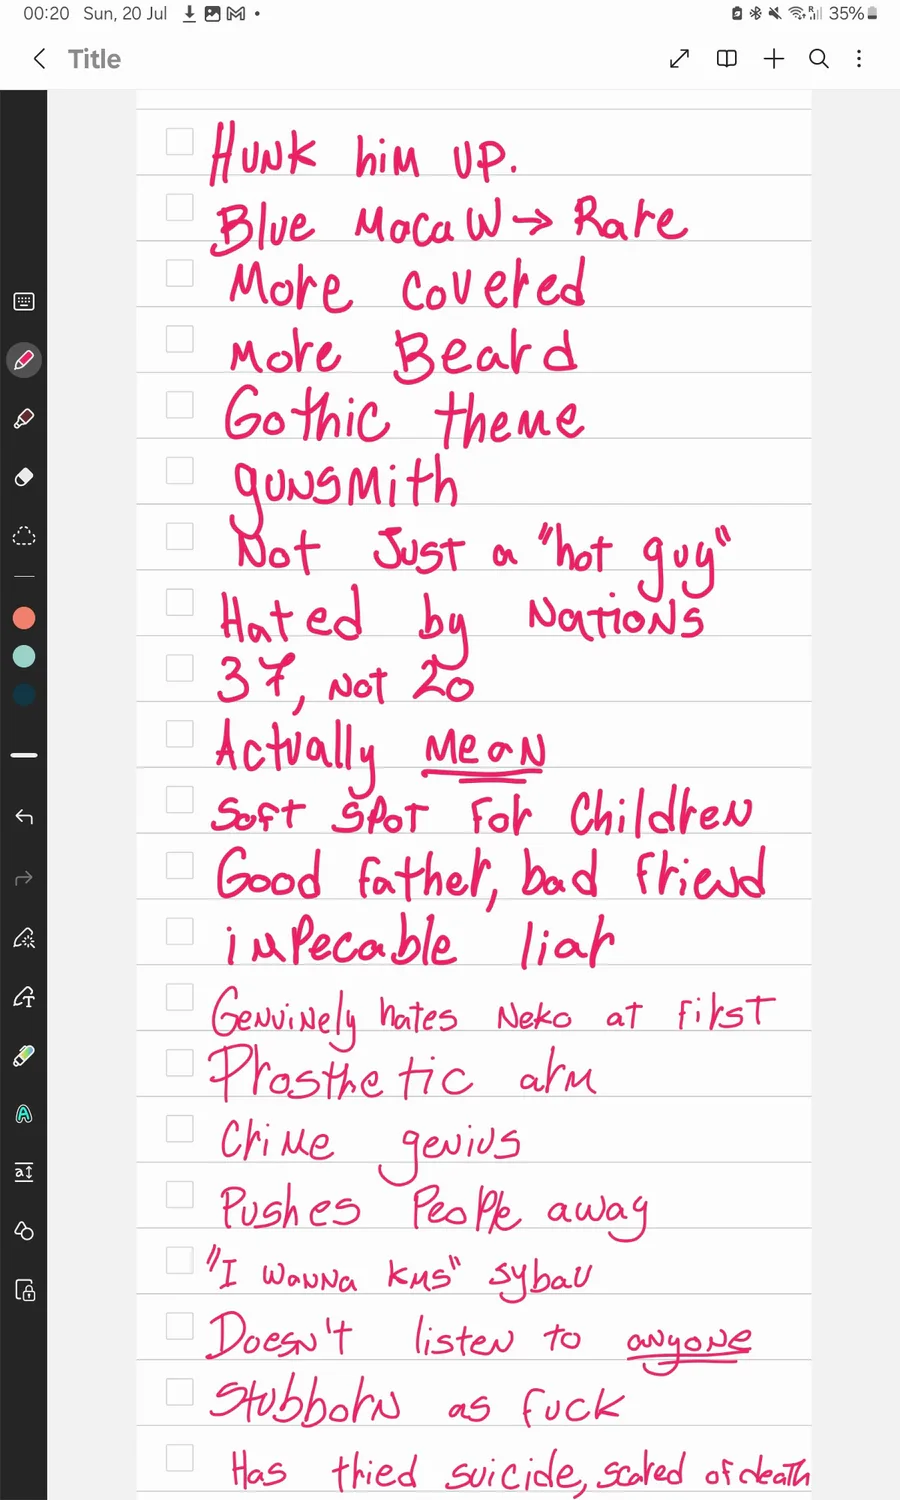 00:20 Sun, 20 Jul 35%
Title
Hunk him up.
Blue Macaw → Rare
More covered
More Beard
Gothic theme
gunsmith
Not Just a "hot guy"
Hated by Nations
37, not 20
Actually mean
Soft spot for children
Good father, bad friend
impecable liar
Genuinely hates Neko at first
Prosthetic arm
Crime genius
Pushes People away
"I wanna kms" sybau
Doesn't listen to anyone
Stubborn as fuck
Has tried suicide, scared of death